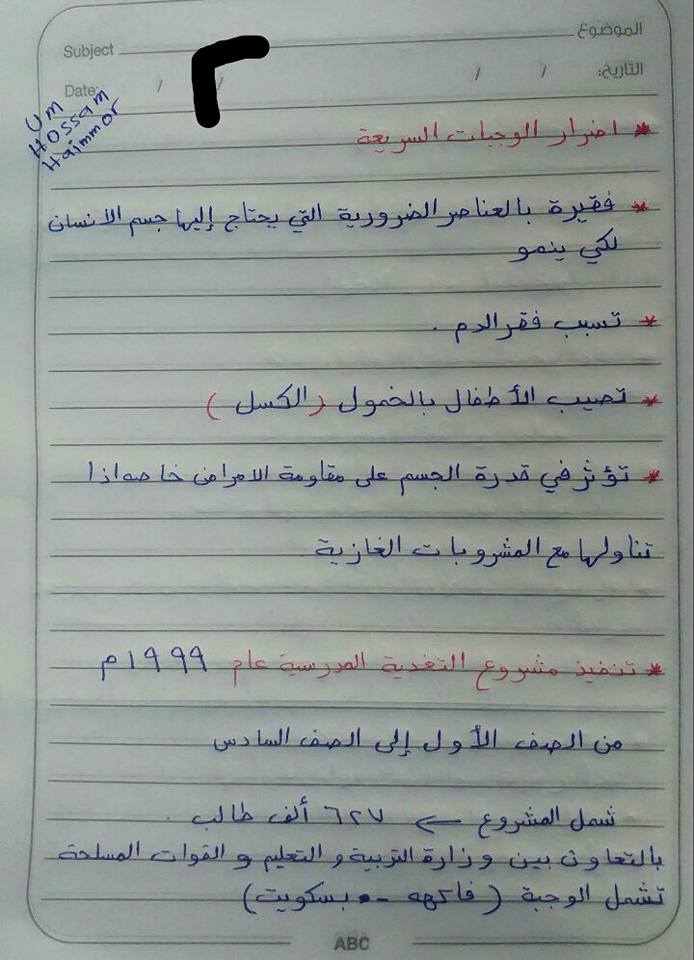 الموضوع
Subject
التاريخ: / /
Date: / /
٢
Um
Hossam
Haimmor
* اضرار الوجبات السريعة
* فقيرة بالعناصر الضرورية التي يحتاج إليها جسم الانسان
لكي ينمو
* تسبب فقر الدم .
* تصيب الأطفال بالخمول (الكسل)
* تؤثر في قدرة الجسم على مقاومة الامراض خاصه اذا
تناولها مع المشروبات الغازية
* تنفيذ مشروع التغدية المدرسية عام ١٩٩٩م
من الصف الأول إلى الصف السادس
شمل المشروع ← ٦٢٧ ألف طالب .
بالتعاون بين وزارة التربية و التعليم و القوات المسلحة
تشمل الوجبة (فاكهه - بسكويت)
ABC